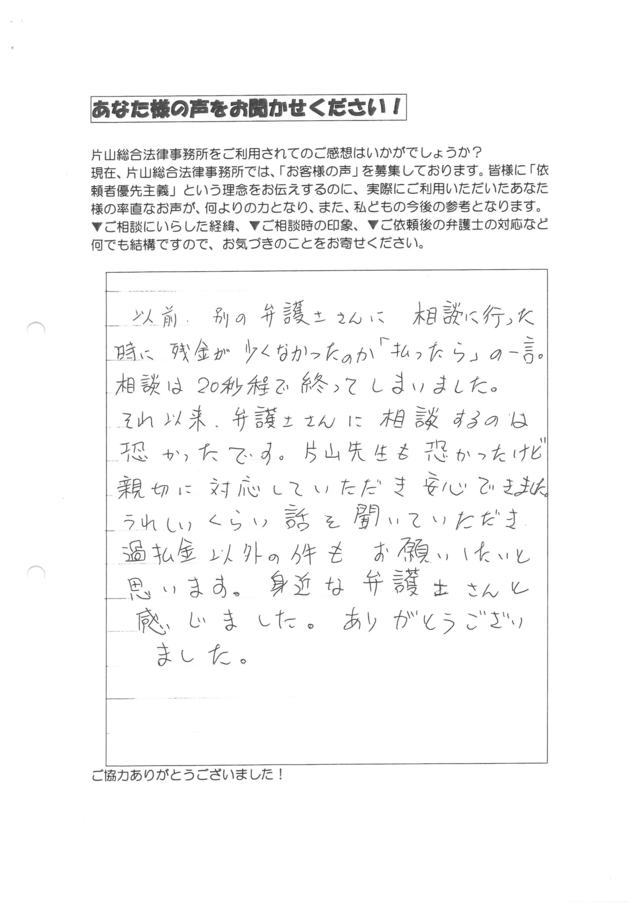 あなた様の声をお聞かせください！
片山総合法律事務所をご利用されてのご感想はいかがでしょうか？
現在、片山総合法律事務所では、「お客様の声」を募集しております。皆様に「依
頼者優先主義」という理念をお伝えするのに、実際にご利用いただいたあなた
様の率直なお声が、何よりの力となり、また、私どもの今後の参考となります。
▼ご相談にいらした経緯、▼ご相談時の印象、▼ご依頼後の弁護士の対応など
何でも結構ですので、お気づきのことをお寄せください。
以前、別の弁護士さんに 相談に行った
時に 残金が少くなかったのか「払ったら」の一言。
相談は20秒程で終ってしまいました。
それ以来、弁護士さんに相談するのは
恐かったです。片山先生も恐かったけど
親切に対応していただき安心できました。
うれしいくらい話を聞いていただき
過払金以外の件もお願いしたいと
思います。身近な弁護士さんと
感じました。ありがとうござい
ました。
ご協力ありがとうございました！